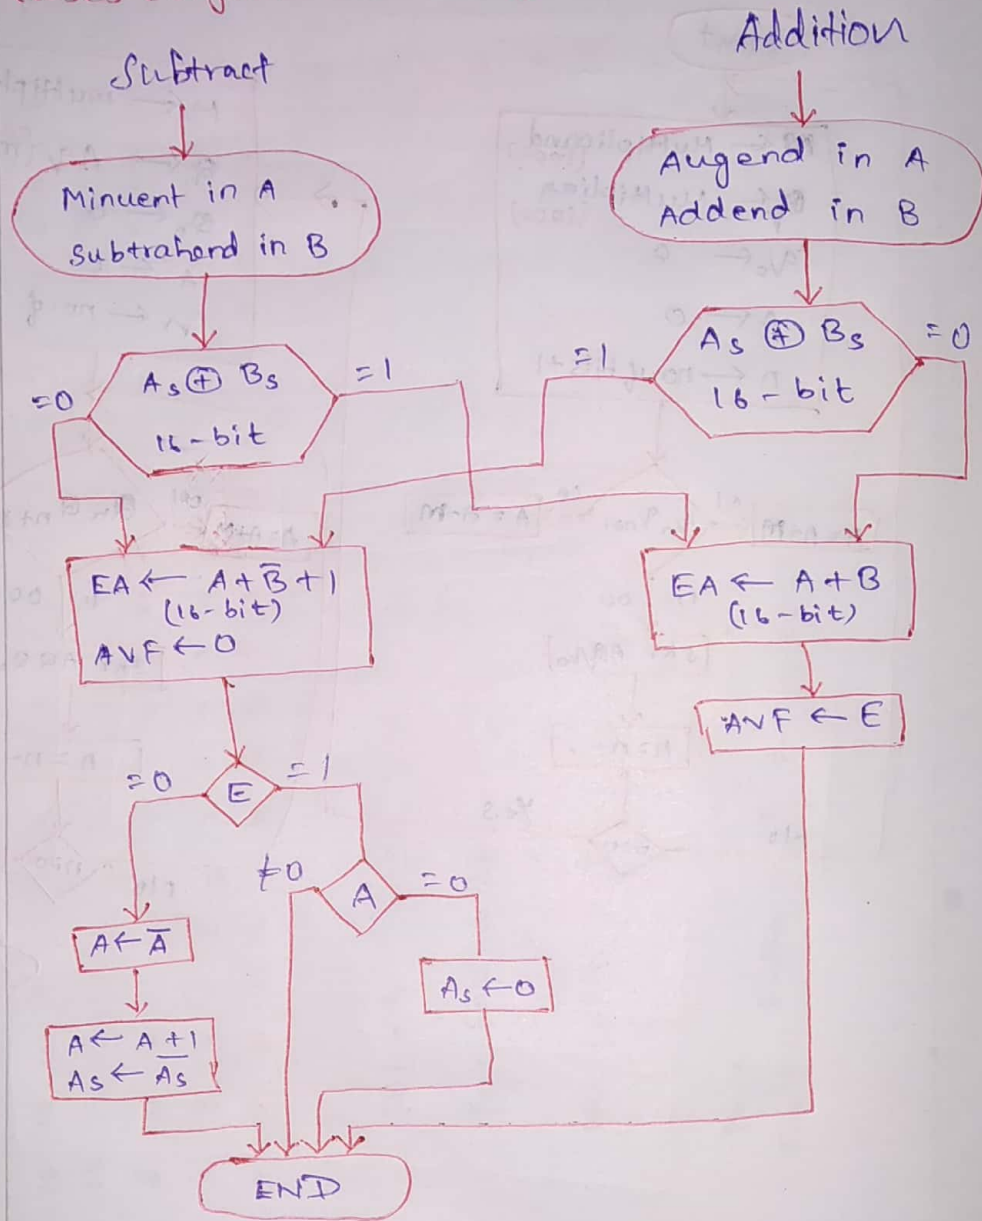 Subtract
Addition
Minuent in A
Subtrahend in B
Augend in A
Addend in B
As ⊕ Bs
16-bit
=0
=1
As ⊕ Bs
16-bit
=1
=0
EA ← A + B̅ + 1
(16-bit)
AVF ← 0
EA ← A + B
(16-bit)
AVF ← E
E
=0
=1
A
≠0
=0
A ← A̅
As ← 0
A ← A + 1
As ← A̅s̅
END